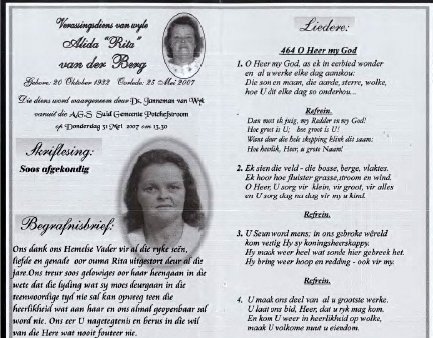 Verassingsdiens van wyle
Alida "Rita"
van der Berg
Gebore: 20 Oktober 1932 Oorlede: 25 Mei 2007
Die diens word waargeneem deur Ds. Janneman van Wyk
vanuit die A.G.S. Suid Gemeente Potchefstroom
op Donderdag 31 Mei 2007 om 13.30
Skriflesing:
Soos afgekondig
Begrafnisbrief:
Ons dank ons Hemelse Vader vir al die ryke seën,
liefde en genade oor ouma Rita uitgestort deur al die
jare. Ons treur soos gelowiges oor haar heengaan in die
wete dat die lyding wat sy moes deurgaan in die
teenwoordige tyd nie sal kan opweeg teen die
heerlikheid wat aan haar en ons almal geopenbaar sal
word nie. Ons eer U nagetegtenis en berus in die wil
van die Here wat nooit fouteer nie.
Liedere:
464 O Heer my God
1. O Heer my God, as ek in eerbied wonder
en al u werke elke dag aanskou:
Die son en maan, die aarde, sterre, wolke,
hoe U dit elke dag so onderhou...
Refrein.
Dan moet ek juig, my Redder en my God!
Hoe groot is U; hoe groot is U!
Want deur die hele skepping klink dit saam:
Hoe heerlik, Heer, u grote Naam!
2. Ek sien die veld - die bosse, berge, vlaktes.
Ek hoor hoe fluister grasse, stroom en wind.
O Heer, U sorg vir klein, vir groot, vir alles
en U sorg dag na dag vir my u kind.
Refrein.
3. U Seun word mens; in ons gebroke wêreld
kom vestig Hy sy koningsheerskappy.
Hy maak weer heel wat sonde hier gebreek het.
Hy bring weer hoop en redding - ook vir my.
Refrein.
4. U maak ons deel van al u grootste werke.
U laat ons bid, Heer, dat u ryk mag kom.
En kom U weer in heerlikheid op wolke,
maak U volkome nuut u eiendom.